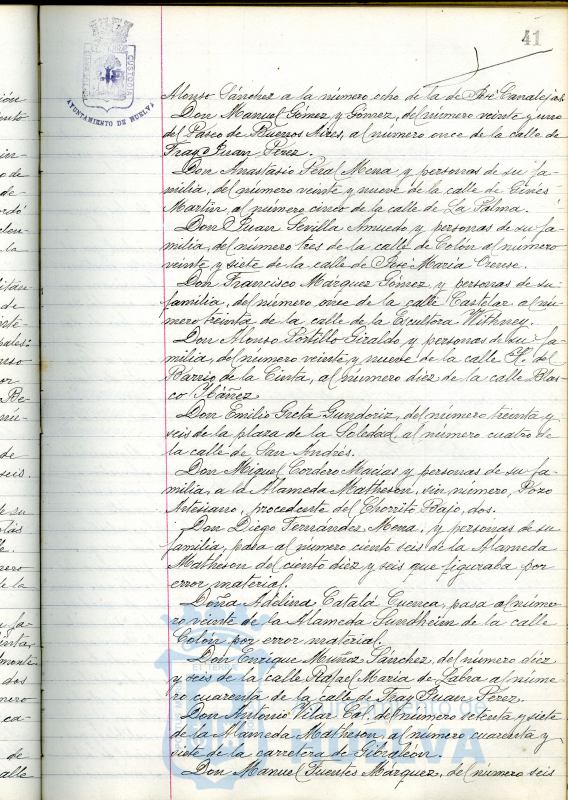 41
AYUNTAMIENTO DE HUELVA
CUSTODIA
Alonso Sánchez a la número ocho de la de José Canalejas.
Don Manuel Gómez y Gómez, del número veinte y uno
del Paseo de Buenos Aires, al número once de la calle de
Fray Juan Pérez.
Don Anastasio Peral Mena y personas de su fa-
milia, del número veinte y nueve de la calle de Ginés
Martín al número cinco de la calle de La Palma.
Don Juan Sevilla Amuedo y personas de su fa-
milia, del número tres de la calle de Colón al número
veinte y siete de la calle de José María Orense.
Don Francisco Márquez Gómez y personas de su
familia, del número once de la calle Castelar al nú-
mero treinta de la calle de la Escultora Withney.
Don Alonso Portillo Giraldo y personas de su fa-
milia, del número veinte y nueve de la calle H. del
Barrio de la Cinta, al número diez de la calle Blas-
co Ibáñez
Don Emilio Greta Gundoriz, del número treinta y
seis de la plaza de la Soledad, al número cuatro de
la calle de San Andrés.
Don Miguel Cordero Macías y personas de su fa-
milia, a la Alameda Matheson, sin número, Pozo
Artesiano, procedente del Chorrito Bajo, dos.
Don Diego Fernández Mena, y personas de su
familia, pasa al número ciento seis de la Alameda
Matheson del ciento diez y seis que figuraba por
error material.
Doña Adelina Catalá Cuenca, pasa al núme-
ro veinte de la Alameda Sundheim de la calle
Colón por error material.
Don Enrique Muñoz Sánchez, del número diez
y seis de la calle Rafael María de Labra al núme-
ro cuarenta de la calle de Fray Juan Pérez.
Don Antonio Vilar Cot, del número setenta y siete
de la Alameda Matheson, al número cuarenta y
siete de la carretera de Gibraleón.
Don Manuel Fuentes Márquez, del número seis
Ayuntamiento de
HUELVA